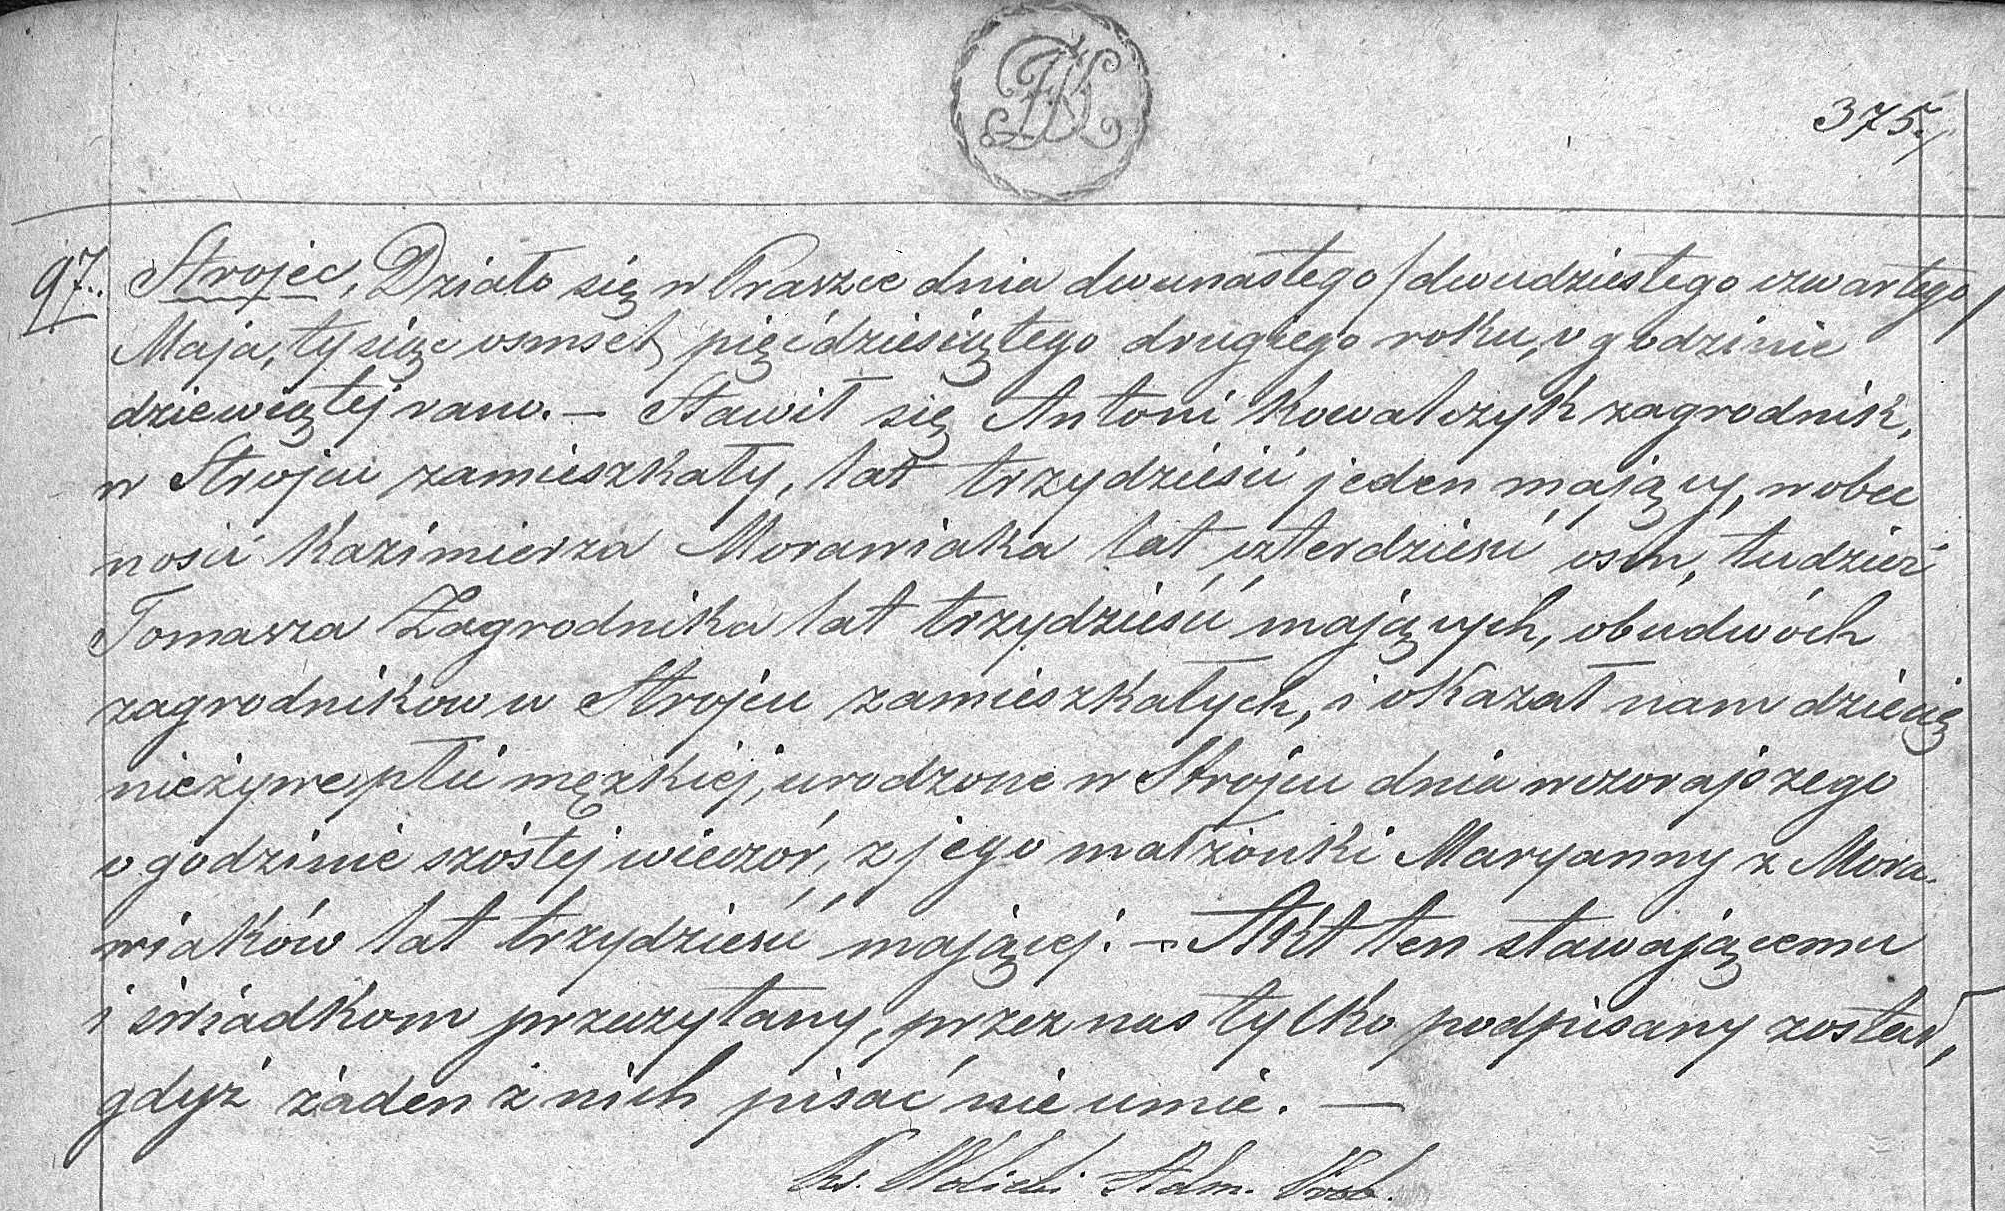 375.
97. Strojec, Działo się w Praszce dnia dwunastego /dwudziestego czwartego/
Maja, tysiąc osmset pięćdziesiątego drugiego roku, o godzinie
dziewiątej rano. — Stawił się Antoni Kowalczyk zagrodnik,
w Strojcu zamieszkały, lat trzydzieści jeden mający, w obec
ności Kazimierza Morawiaka lat czterdzieści osm, tudzież
Tomasza Zagrodnika lat trzydzieści mających, obudwóch
zagrodnikow w Strojcu zamieszkałych, i okazał nam dziecię
nieżywe płci męzkiej, urodzone w Strojcu dnia wczorajszego
o godzinie szóstej wieczór, z jego małżonki Maryanny z Mora-
wiaków lat trzydzieści mającej. — Akt ten stawającemu
i świadkom przeczytany, przez nas tylko podpisany został,
gdyż żaden z nich pisać nie umie. —
Ks. Wolicki Adm. Prob.